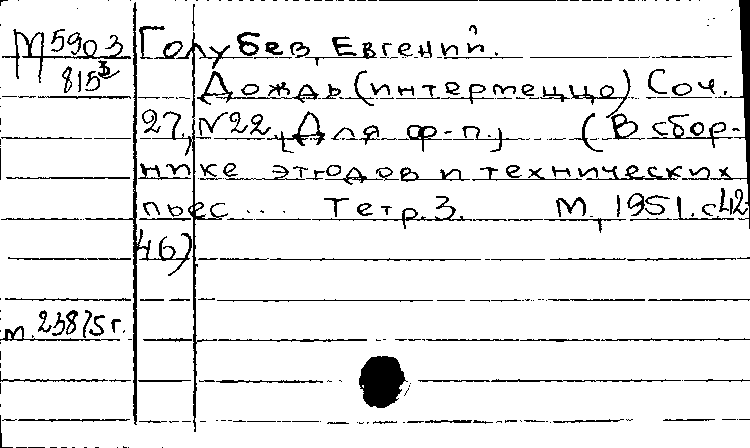 М 5903 Голубев, Евгений.
815 Дождь (интермеццо) Соч.
27, N22. [Для ф-п.] (В сбор-
нике этюдов и технических
пьес... Тетр. 3. М, 1951. с42-
46)
т. 23875г.